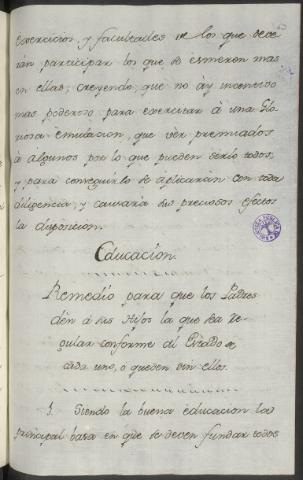 exercicios, y facultades de los que debe
ran participar los que se esmeren mas
en ellas; creyendo, que no áy incentivo
mas poderoso para exercitar á una Glo
riosa emulacion, que vèr premiados
à algunos por lo que pueden serlo todos,
y para conseguirlo se aplicarán con toda
diligencia, y causará sus preciosos efectos
la disposicion.
Educacion.
Remedio para que los Padres
dén à sus Hijos la que sea re-
gular conforme al Estado de
cada uno, o queden sin ellos.
1. Siendo la buena educacion la
principal basa en que se deven fundar todos